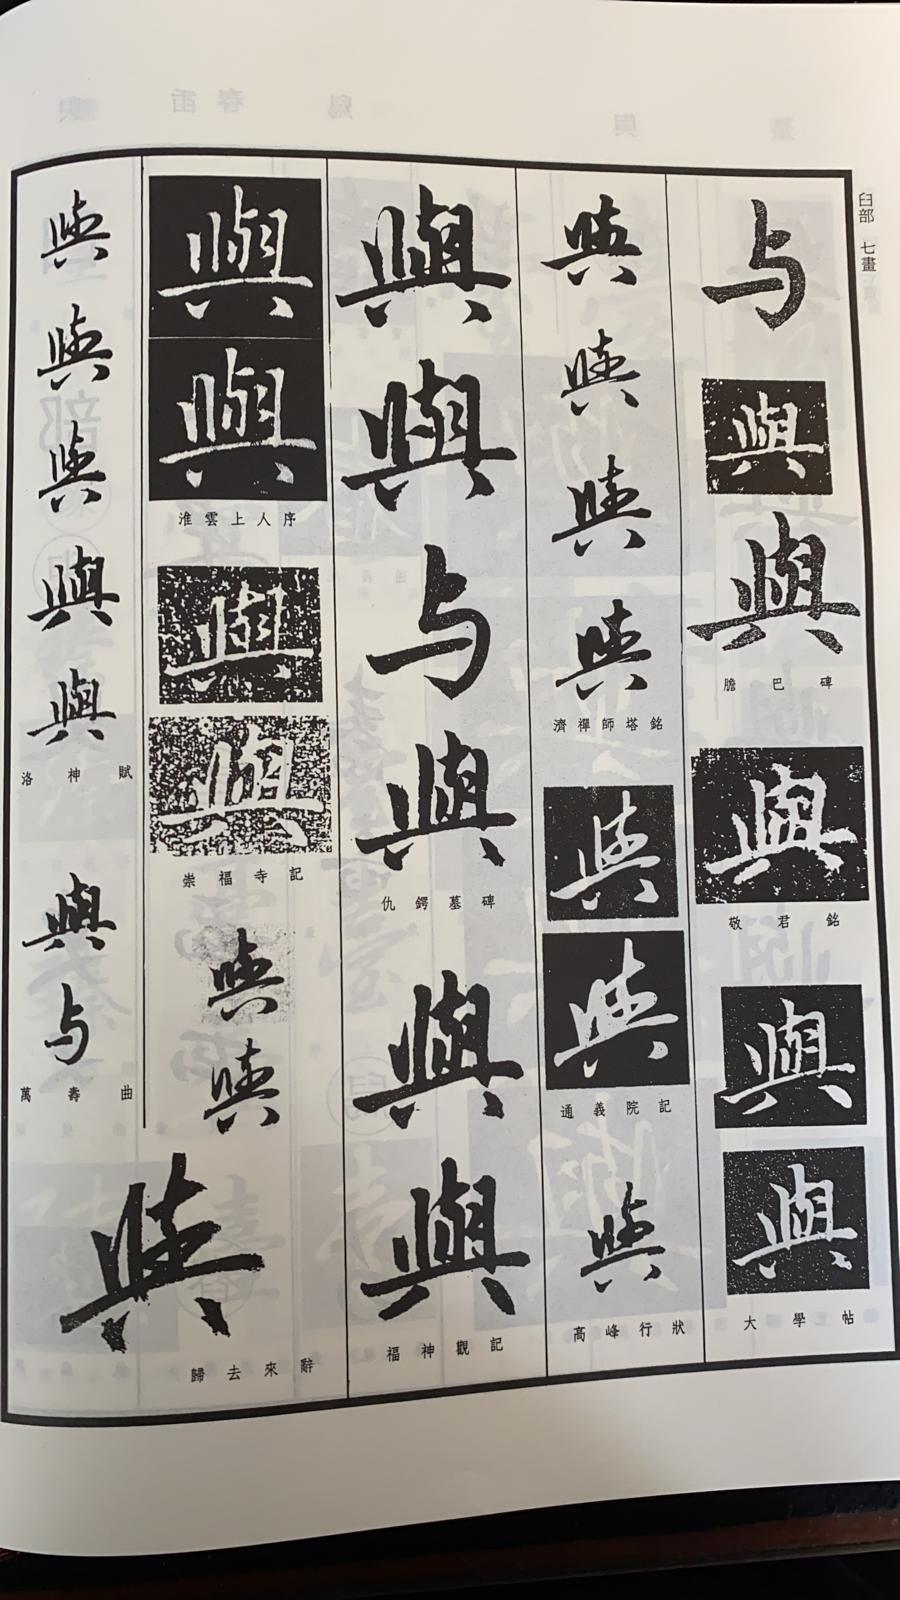 臼部 七畫
与
與
與
膽巴碑
與
敬君銘
與
與
大學帖
與
與
與
與
濟禪師塔銘
與
與
通義院記
與
高峰行狀
與
與
与
與
仇鍔墓碑
與
與
福神觀記
與
與
淮雲上人序
與
與
崇福寺記
與
與
與
歸去來辭
與
與
與
與
與
洛神賦
與
与
萬壽曲